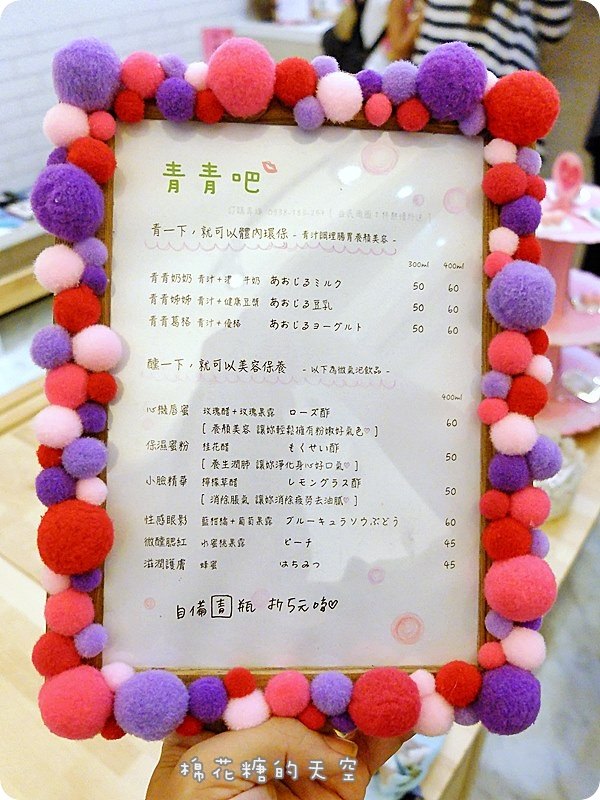 青青吧
青一下，就可以體內環保 - 青汁調理腸胃養顏美容 -
300ml 400ml
青青奶奶 青汁+濃 牛奶 あおじるミルク 50 60
青青姊姊 青汁+健康豆漿 あおじる豆乳 50 60
青青葛格 青汁+優格 あおじるヨーグルト 50 60
醺一下，就可以美容保養 - 以下為微氣泡飲品 -
400ml
心機唇蜜 玫瑰醋+玫瑰果露 ローズ酢 60
[ 養顏美容 讓妳輕鬆擁有粉嫩好氣色♡ ]
保濕蜜粉 桂花醋 もくせい酢 50
[ 養生潤肺 讓妳淨化身心好口氣♡ ]
小臉精華 檸檬草醋 レモングラス酢 50
[ 消除脹氣 讓妳消除疲勞去油膩♡ ]
性感眼影 藍柑橘+葡萄果露 ブルーキュラソウぶどう 60
微醺腮紅 水蜜桃果露 ピーチ 45
滋潤護膚 蜂蜜 はちみつ 45
自備青瓶 折5元唷♡
棉花糖的天空